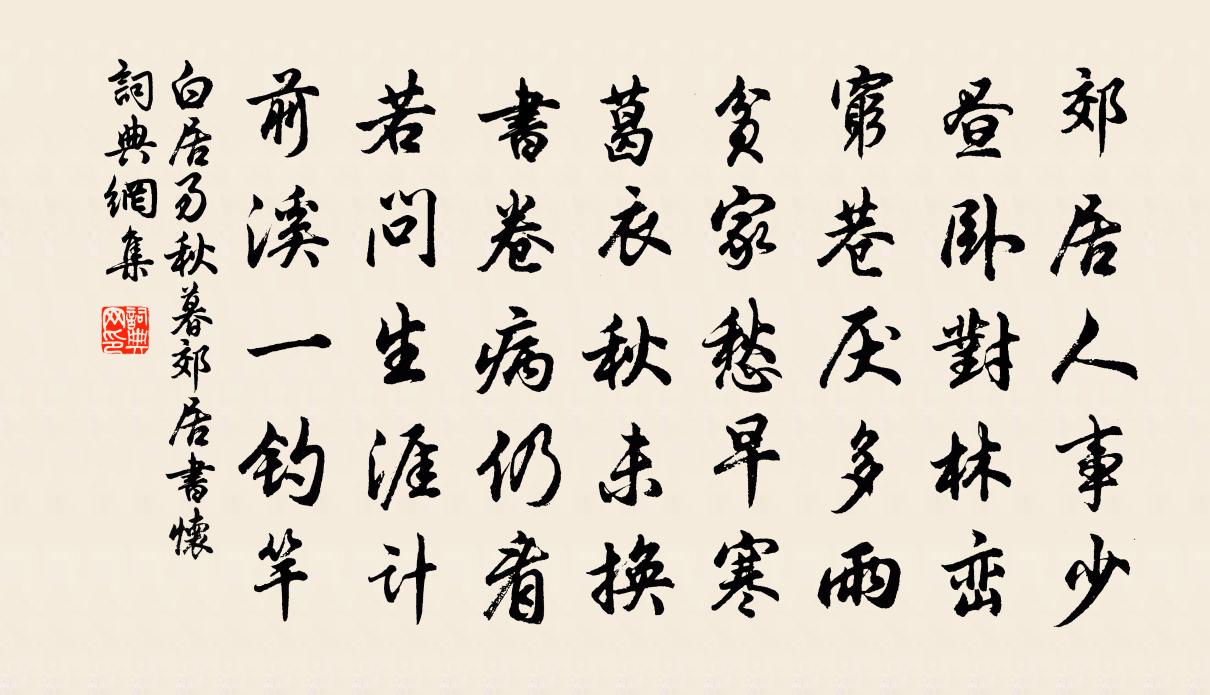 郊居人事少
昼卧對林巒
窮巷厌多雨
貧家愁早寒
葛衣秋未换
書卷病仍看
若問生涯计
前溪一钓竿
白居易秋暮郊居書懷
詞典網集
詞典网印